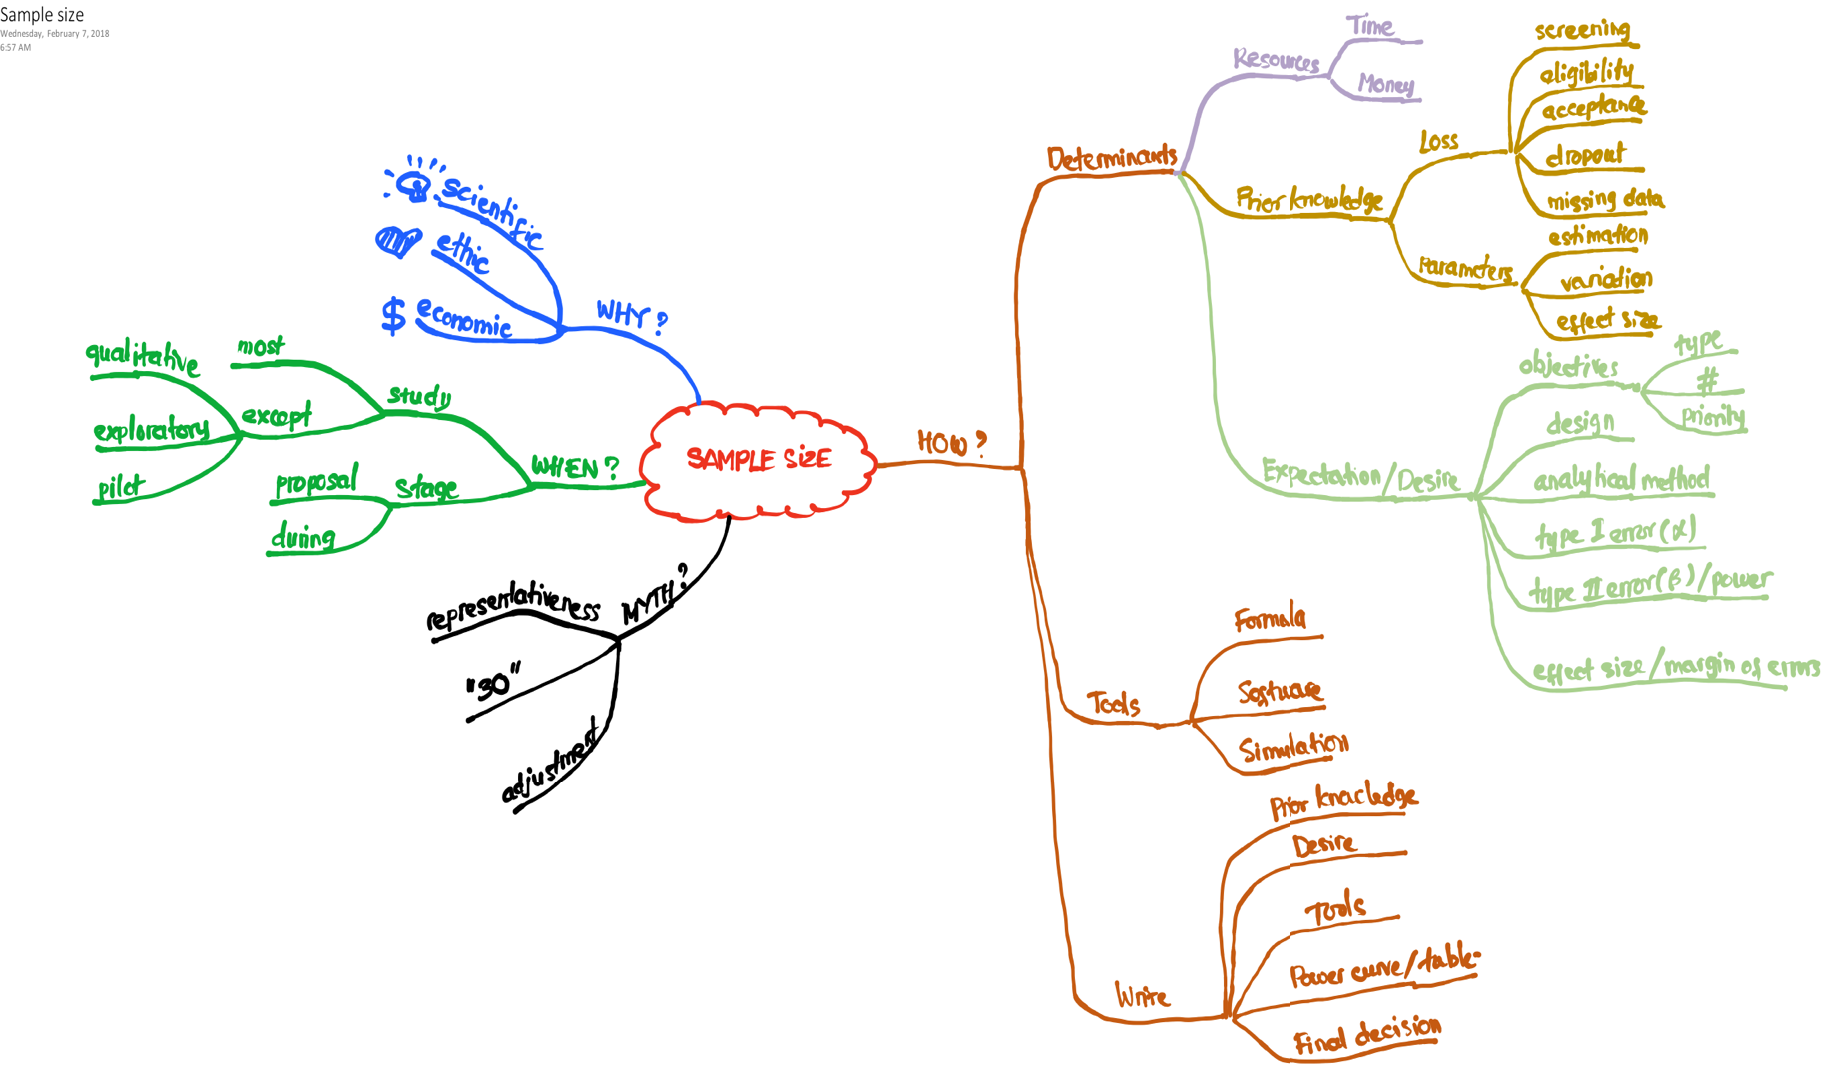 Sample size
Wednesday, February 7, 2018
6:57 AM
SAMPLE SIZE
WHY?
scientific
ethic
$ economic
WHEN?
study
most
except
qualitative
exploratory
pilot
Stage
proposal
during
MYTH?
representativeness
"30"
adjustment
HOW?
Determinants
Resources
Time
Money
Prior knowledge
Loss
screening
eligibility
acceptance
dropout
missing data
Parameters
estimation
variation
effect size
Expectation/Desire
objectives
type
#
priority
design
analytical method
type I error (α)
type II error (β)/power
effect size/margin of errors
Tools
Formula
Software
Simulation
Write
Prior knowledge
Desire
Tools
Power curve/table
Final decision